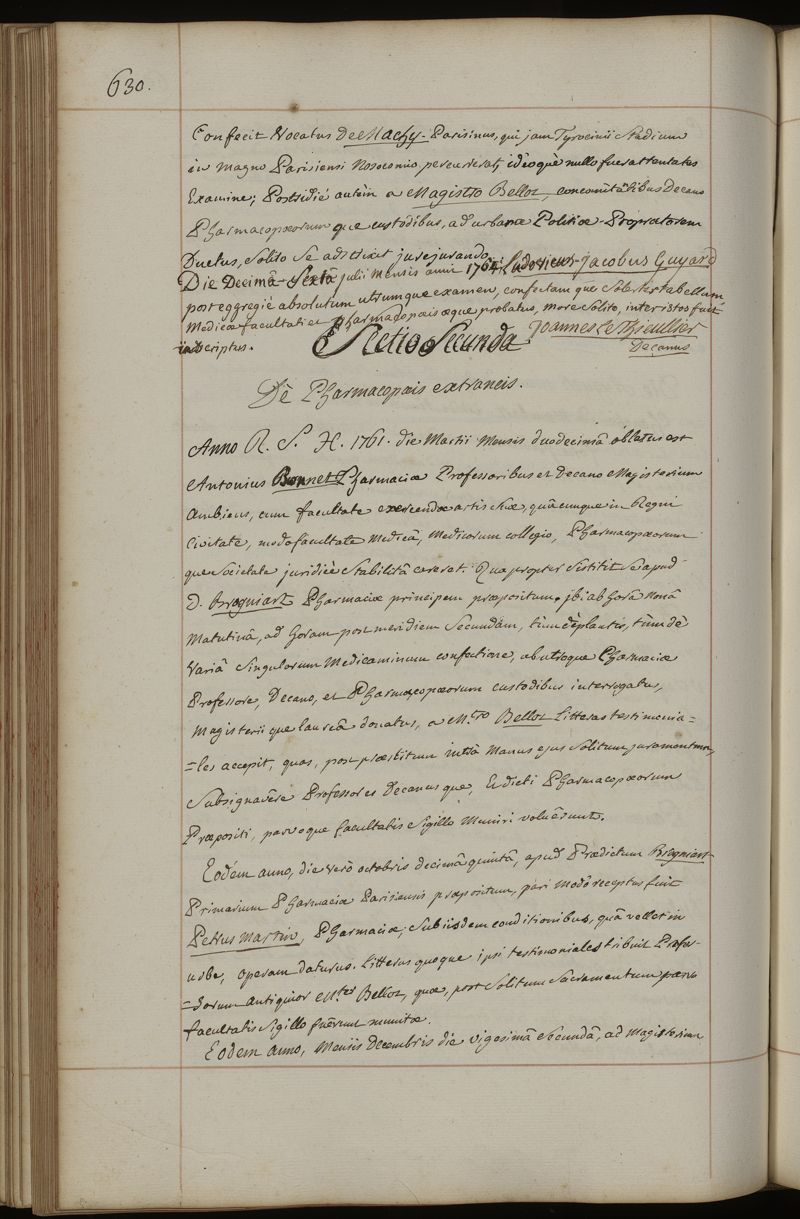 630.
Confecit Vocatus DeMachy Parisinus, qui jam Tyrocinii Stadium
in magno Parisiensi Nosocomio percurrerat, ideoquè nullo fuerat tentatus
Examine; Postridié autèm a Magistro Bellot, concomitãtibus Decano
Pharmacopœorum que custodibus, ad urbanæ Politiæ Proprætorem
Ductus, solito se adstrixit jurejurando.
Die Decimâ Sextâ julii mensis anni 1764 Ludovicus-Jacobus Guyard
post eggregiè absolutum utrumque examen, confectam que Solerter tabellam
medicæ facultati et Pharmacopæis æque probatus, more solito, inter istos fuit
inscriptus. Joannes Le Thieullier
Decanus
Sectio Secunda
Dè Pharmacopæis extraneis.
Anno R. S. H. 1761. die Martii mensis duodecimâ oblatus est
Antonius Bonnet Pharmaciæ Professoribus et Decano Magisterium
Ambiens, cum facultate exercendæ artis suæ, quâcumque in Regni
Civitate, modo facultate Medicâ, Medicorum collegio, Pharmacopæorum
que Societate juridicè Stabilitâ careret. Quapropter Sistitit Se apud
D. Brogniart Pharmaciæ principem præpositum, jbi ab hora nonâ
matutinâ, ad horam post meridiem Secundam, tùm dè plantis, tùm dè
variâ Singulorum Medicaminum confectione, ab utroque Pharmaciæ
Professore, Decano, et Pharmacopæorum custodibus interrogatus,
magisterii que laureâ donatus, a M.ro Bellot Litteras testimonia=
=les accepit, quas, post præstitum intrà manus ejus solitum juramentum,
Subsignavêre Professores Decanus que, Et dicti Pharmacopæorum
Præpositi, parvo que facultatis Sigillo muniri voluêrunt.
Eodèm anno, die verò octobris decimâ quintâ, apud Prædictum Brogniart
Primarium Pharmaciæ Parisiensis præpositum, pari modo receptus fuit
Petrus Martin, Pharmaciæ, Sub iisdem conditionibus, quâ vellet in
urbe, operam daturus. Litteras quoque ipsi testimoniales tribuit Profes-
=sorum Antiquior M.ter Bellot, quæ, post Solitum Sacramentum parvo
facultatis Sigillo fuêrunt munitæ.
Eodem anno, Mensis Decembris die vigesimâ Secundâ, ad magisterium